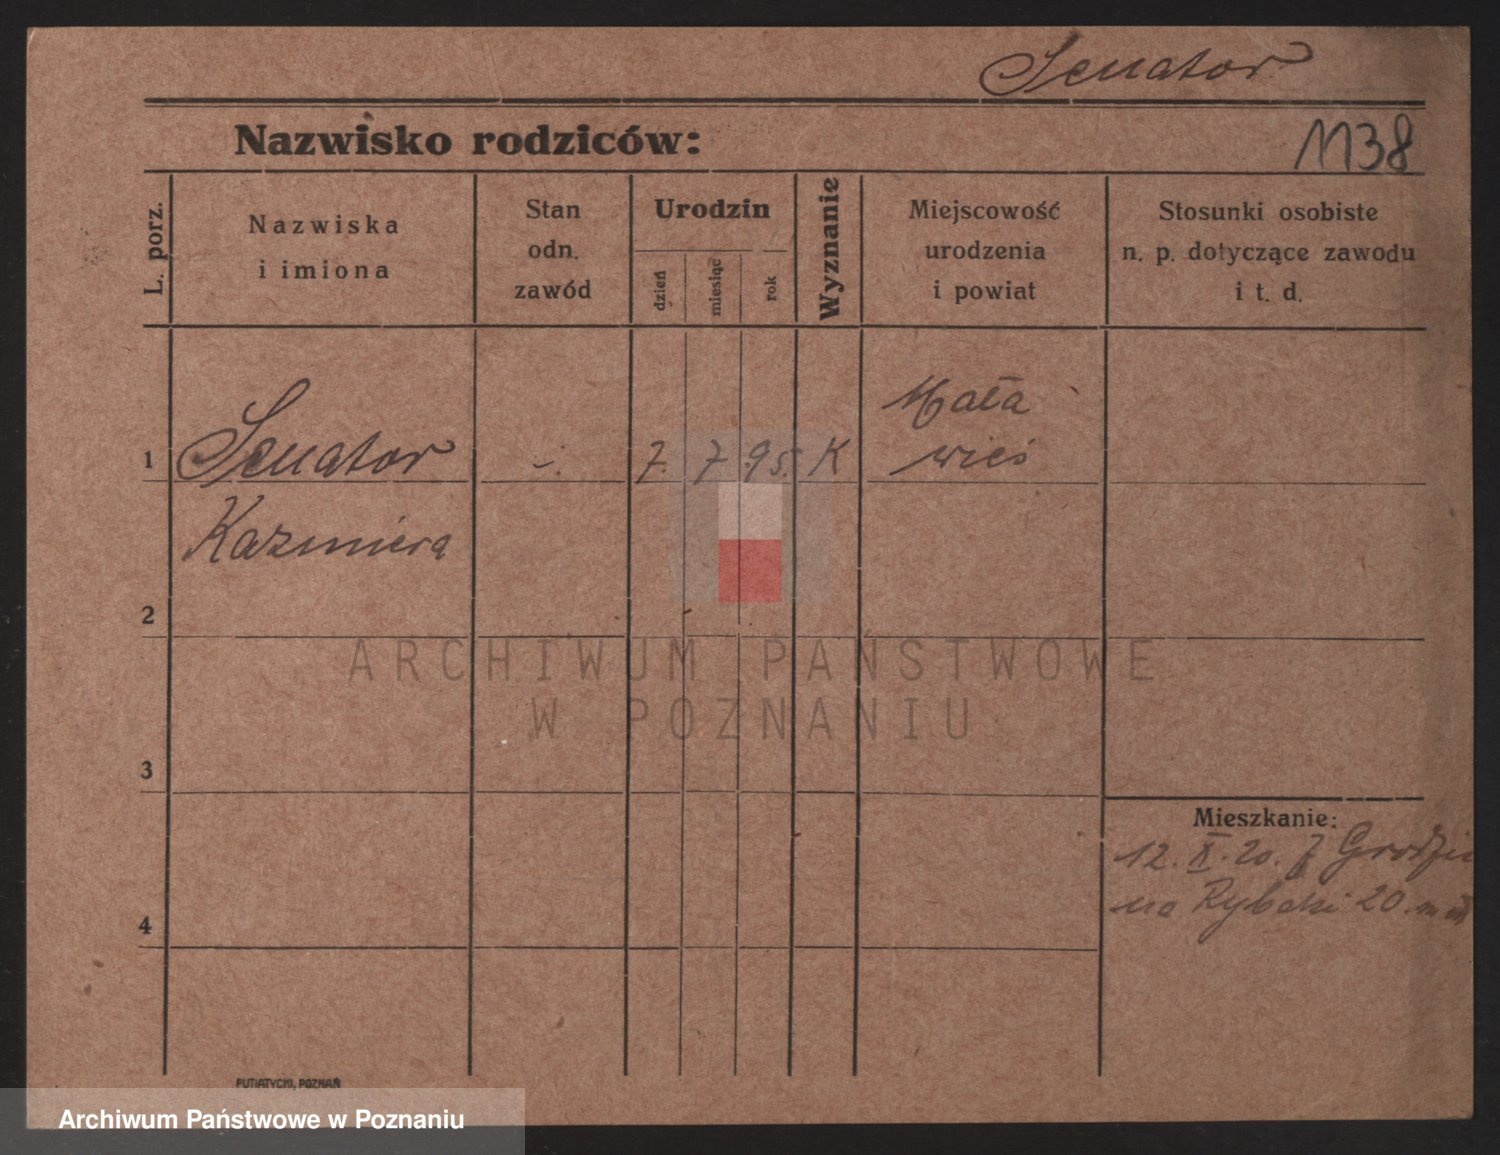 Senator
Nazwisko rodziców:
1138
L. porz.
Nazwiska
i imiona
Stan
odn.
zawód
Urodzin
dzień
miesiąc
rok
Wyznanie
Miejscowość
urodzenia
i powiat
Stosunki osobiste
n. p. dotyczące zawodu
i t. d.
Mała
1 Senator -.- 7. 7 95. K wieś
Kazmiera
2
ARCHIWUM PAŃSTWOWE
W POZNANIU
3
Mieszkanie:
12. X. 20. Grodzi
na Rybaki 20
4
PUTIATYCKI, POZNAŃ
Archiwum Państwowe w Poznaniu